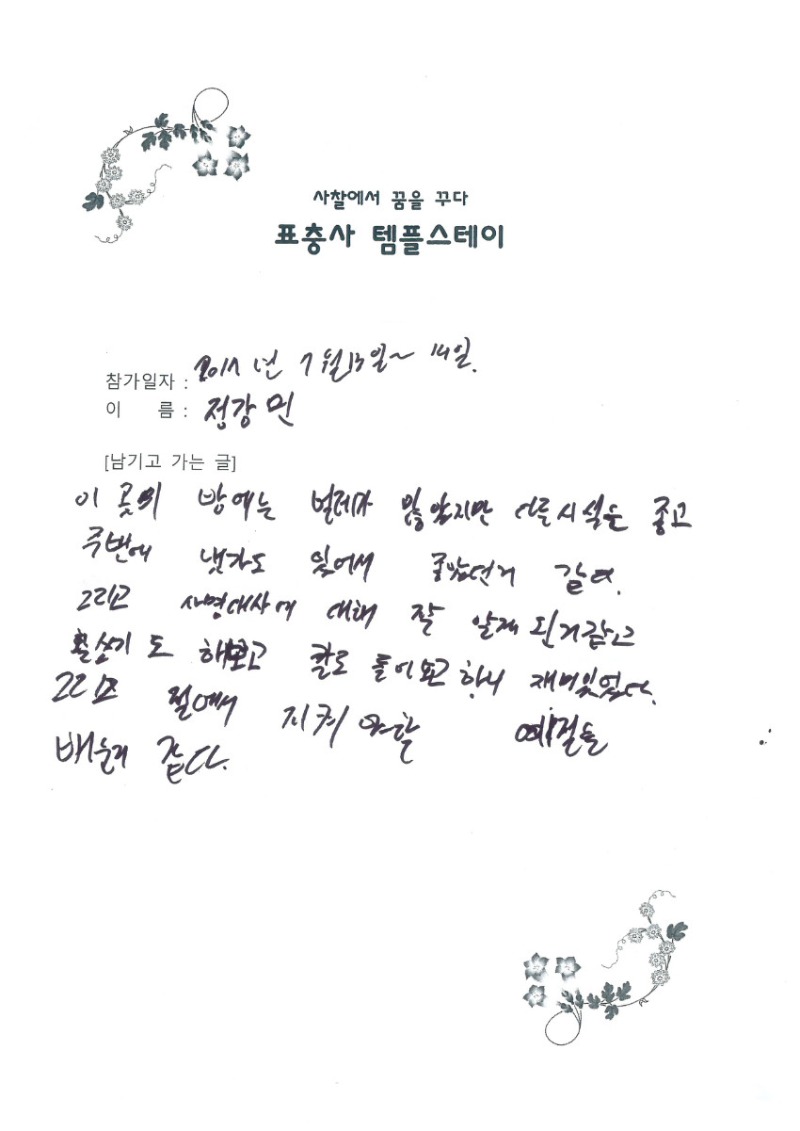 사찰에서 꿈을 꾸다
표충사 템플스테이
참가일자 : 2017년 7월13일~ 14일.
이 름 : 정강민
[남기고 가는 글]
이 곳의 방에는 벌레가 많았지만 다른시설은 좋고
주변에 냇가도 있어서 좋았던거 같다.
그리고 사명대사에 대해 잘 알게 된거같고
활쏘기 도 해보고 칼도 들어보고 하니 재미있었다.
그리고 절에서 지켜야할 예절들
배운거 같다.